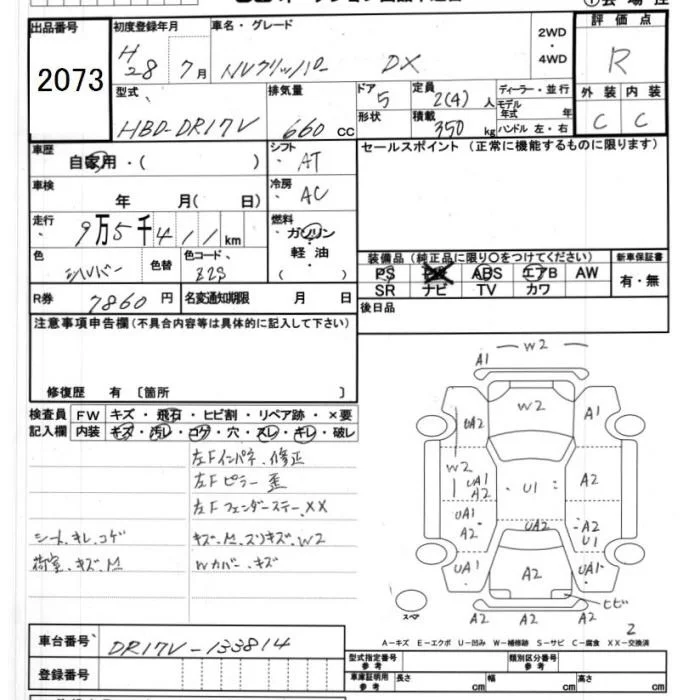 ① 会場注
出品番号 初度登録年月 車名・グレード 2WD・4WD 評価点
2073 H28 7月 NVクリッパー DX R
型式 排気量 ドア 定員 ディーラー・並行 外装 内装
HBD-DR17V 660 cc 5 2(4)人 モデル年式 年 C C
形状 積載 350 kg ハンドル 左・右
車歴 自家用・( ) シフト・AT セールスポイント (正常に機能するものに限ります)
車検 年 月( 日) 冷房・AC
走行 9万5千411km 燃料・ガソリン・軽油・( )
色 シルバー 色替 色コード Z2S
装備品 (純正品に限り〇をつけてください) 新車保証書
PS PW ABS エアB AW 有・無
SR ナビ TV カワ
R券 7860円 名変通知期限 月 日 後日品
注意事項申告欄 (不具合内容等は具体的に記入して下さい)
修復歴 有 〔箇所 〕
検査員記入欄 FW キズ・飛石・ヒビ割・リペア跡・×要
内装 キズ・汚レ・コゲ・穴・スレ・キレ・破レ
左Fインパネ、修正
左Fピラー 歪
左Fフェンダーステー、XX
シート、キレ、コゲ キズ、M、スリキズ、W2
荷室、キズ、M Wカバー、キズ
W2
A1
W2
UA2 A1
W2 UA1 A2 U1 A2
UA1 A2 UA2 A2 U1
UA1 A2 UA1
ヒビ
A2 A2 A2
スペア 2
A-キズ E-エクボ U-凹み W-補修跡 S-サビ C-腐食 XX-交換済
車台番号 DR17V-133814
型式指定番号 参考 類別区分番号 参考
登録番号 車庫証明用 参考 長さ cm 幅 cm 高さ cm